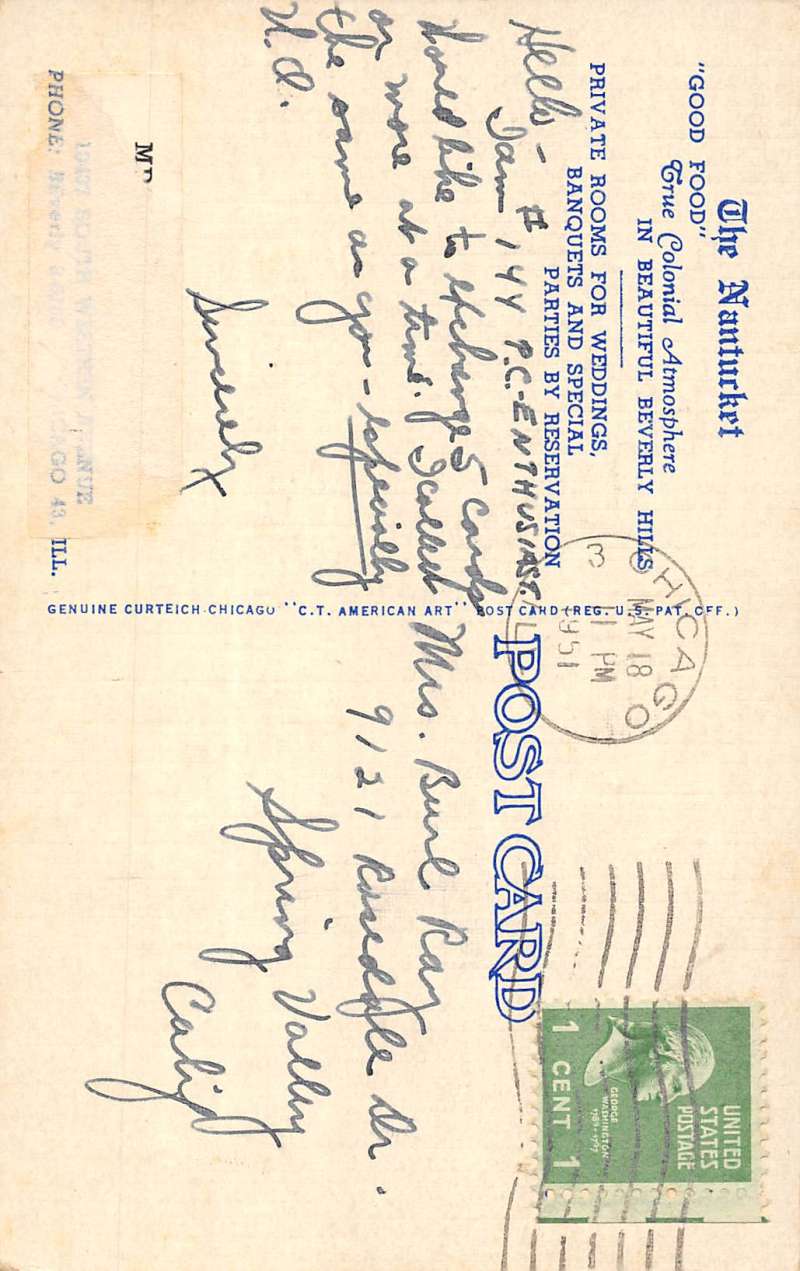 The Nantucket
"GOOD FOOD"
True Colonial Atmosphere
IN BEAUTIFUL BEVERLY HILLS
PRIVATE ROOMS FOR WEDDINGS,
BANQUETS AND SPECIAL
PARTIES BY RESERVATION
Hello -
I am # 144 P.C.-ENTHUSIAST.
Would like to exchange 5 cards
or more at a time. I collect
the same as you - especially
Sincerely
MR
SOUTH WESTERN AVENUE
PHONE: Beverly CHICAGO 43, ILL.
GENUINE CURTEICH-CHICAGO "C.T. AMERICAN ART" POST CARD (REG. U.S. PAT. OFF.)
POST CARD
CHICAGO
MAY 18
11 PM
1951
3
UNITED
STATES
POSTAGE
GEORGE
WASHINGTON
1789-1797
1 CENT 1
Mrs. Burl Ray
9121 Rosedale Dr.
Spring Valley
Calif